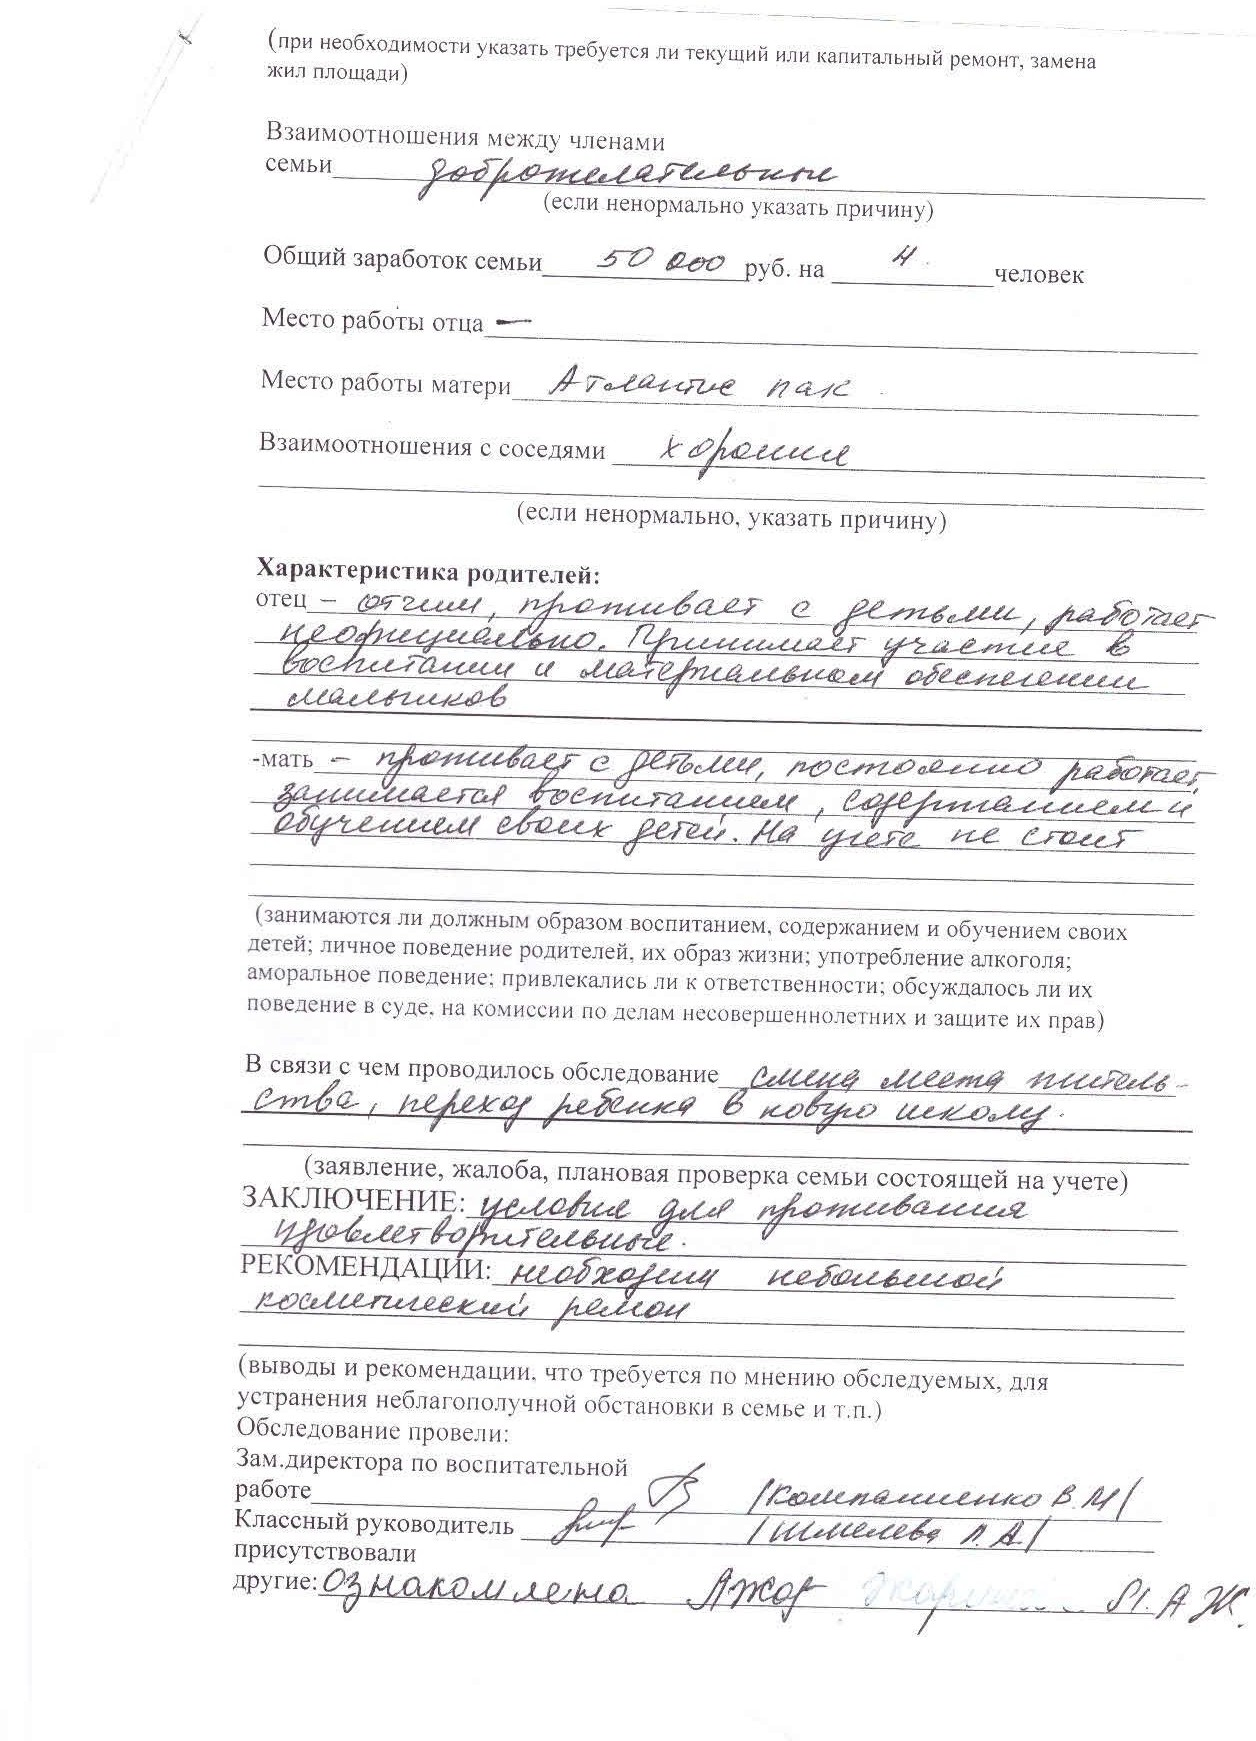 (при необходимости указать требуется ли текущий или капитальный ремонт, замена
жил площади)
Взаимоотношения между членами
семьи доброжелательные
(если ненормально указать причину)
Общий заработок семьи 50 000 руб. на 4 человек
Место работы отца —
Место работы матери Атлантис пак
Взаимоотношения с соседями хорошие
(если ненормально, указать причину)
Характеристика родителей:
отец – отчим, проживает с детьми, работает
неофициально. Принимает участие в
воспитании и материальном обеспечении
мальчиков
-мать – проживает с детьми, постоянно работает,
занимается воспитанием, содержанием и
обучением своих детей. На учете не стоит
(занимаются ли должным образом воспитанием, содержанием и обучением своих
детей; личное поведение родителей, их образ жизни; употребление алкоголя;
аморальное поведение; привлекались ли к ответственности; обсуждалось ли их
поведение в суде, на комиссии по делам несовершеннолетних и защите их прав)
В связи с чем проводилось обследование смена места житель-
ства, переход ребенка в новую школу.
(заявление, жалоба, плановая проверка семьи состоящей на учете)
ЗАКЛЮЧЕНИЕ: условия для проживания
удовлетворительные.
РЕКОМЕНДАЦИИ: необходим небольшой
косметический ремон
(выводы и рекомендации, что требуется по мнению обследуемых, для
устранения неблагополучной обстановки в семье и т.п.)
Обследование провели:
Зам.директора по воспитательной
работе /Компаниенко В.М/
Классный руководитель /Шмелева Л.А/
присутствовали
другие: ознакомлена